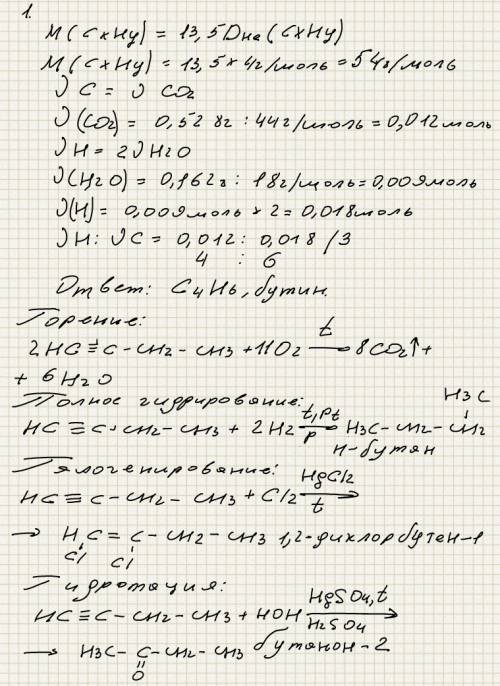 1.
M(CxHy) = 13,5 DHe(CxHy)
M(CxHy) = 13,5 × 4г/моль = 54г/моль
ν C = ν CO2
ν(CO2) = 0,528г : 44г/моль = 0,012 моль
ν H = 2ν H2O
ν(H2O) = 0,162г : 18г/моль = 0,009моль
ν(H) = 0,009моль × 2 = 0,018моль
ν H : ν C = 0,012 : 0,018 /3
4 : 6
Ответ: C4H6, бутин.
Горение:
2HC≡C-CH2-CH3 + 11O2 t→ 8CO2↑ +
+ 6H2O
Полное гидрирование:
H3C
HC≡C-CH2-CH3 + 2H2 t,Pt/p→ H3C-CH2-CH2
н-бутан
Галогенирование:
HC≡C-CH2-CH3 + Cl2 HgCl2/t→
→ HC=C-CH2-CH3 1,2-дихлорбутен-1
Cl Cl
Гидротация:
HC≡C-CH2-CH3 + HOH HgSO4,t/H2SO4→
→ H3C-C-CH2-CH3 бутанон-2
O